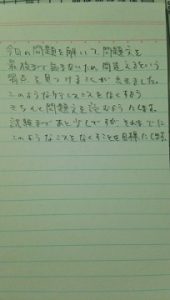 今日の問題を解いて、問題文を
最後まで読まないため間違えるという
弱点を見つけることができました。
このようなケアレスミスをなくすよう
きちんと問題文を読むようにする。
試験まであと少しですが、それまでに
このようなことをなくすことを目標にする。